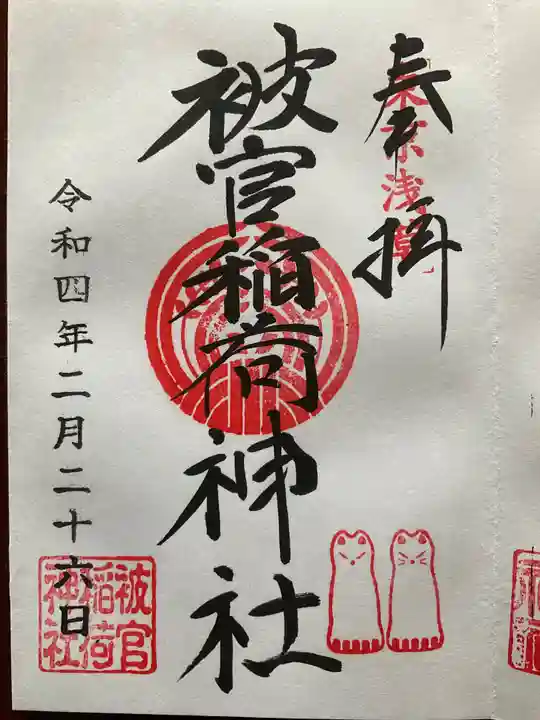 奉拝
東京浅草
被官稲荷神社
令和四年二月二十六日
被官
稲荷
神社